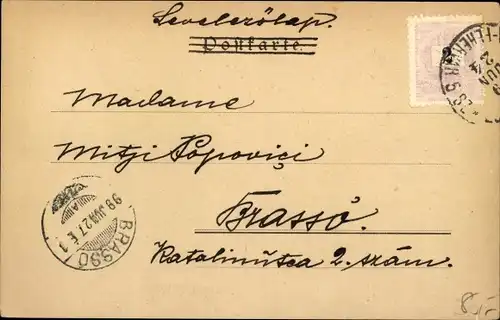 Levelezőlap.
Postkarte.
2
Madame
Mitzi Popovici
Brassó.
Katalinutca 2. szám.
98 JUN 27
BRASSÓ
JUN
24
8,-